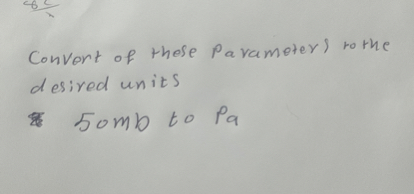 Convert of these parameters to the
desired units
50mb to Pa